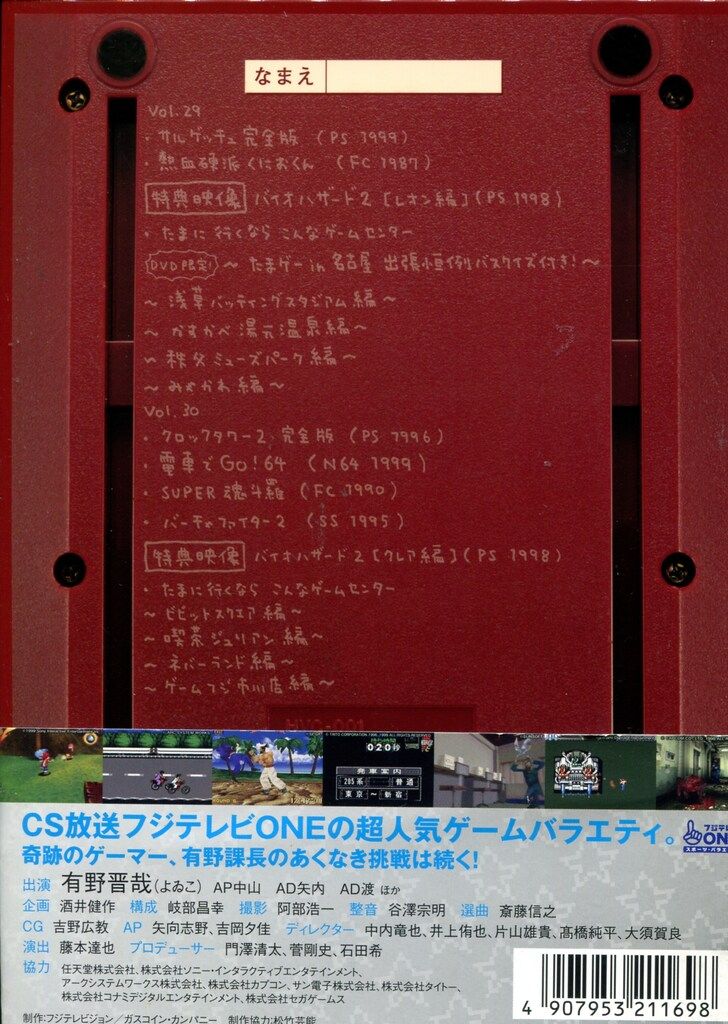 なまえ
Vol.29
・サルゲッチュ完全版 (PS 1999)
・熱血硬派くにおくん (FC 1987)
特典映像 バイオハザード2 [レオン編] (PS 1998)
・たまに行くなら こんなゲームセンター
DVD限定! ～ たまゲー in 名古屋 出張恒例バスクイズ付き! ～
～ 浅草バッティングスタジアム編 ～
～ かすかべ湯元温泉編 ～
～ 秩父ミューズパーク編 ～
～ みかわ編 ～
Vol.30
・クロックタワー2 完全版 (PS 1996)
・電車でGo!64 (N64 1999)
・SUPER 魂斗羅 (FC 1990)
・バーチャファイター2 (SS 1995)
特典映像 バイオハザード2 [クレア編] (PS 1998)
・たまに行くなら こんなゲームセンター
～ ビビットスクエア編 ～
～ 喫茶ジュリアン編 ～
～ ネバーランド編 ～
～ ゲームフジ市川店編 ～
HVC-001
020秒
発車案内
205系 普通
東京 ～ 新宿
CS放送フジテレビONEの超人気ゲームバラエティ。
奇跡のゲーマー、有野課長のあくなき挑戦は続く!
フジテレ
ON
スポーツ・バラエ
出演 有野晋哉(よゐこ) AP中山 AD矢内 AD渡 ほか
企画 酒井健作 構成 岐部昌幸 撮影 阿部浩一 整音 谷澤宗明 選曲 斎藤信之
CG 吉野広教 AP 矢向志野、吉岡夕佳 ディレクター 中内竜也、井上侑也、片山雄貴、髙橋純平、大須賀良
演出 藤本達也 プロデューサー 門澤清太、菅剛史、石田希
協力 任天堂株式会社、株式会社ソニー・インタラクティブエンタテインメント、
アークシステムワークス株式会社、株式会社カプコン、サン電子株式会社、株式会社タイトー、
株式会社コナミデジタルエンタテインメント、株式会社セガゲームス
制作:フジテレビジョン/ガスコイン・カンパニー 制作協力:松竹芸能
4 907953 211698